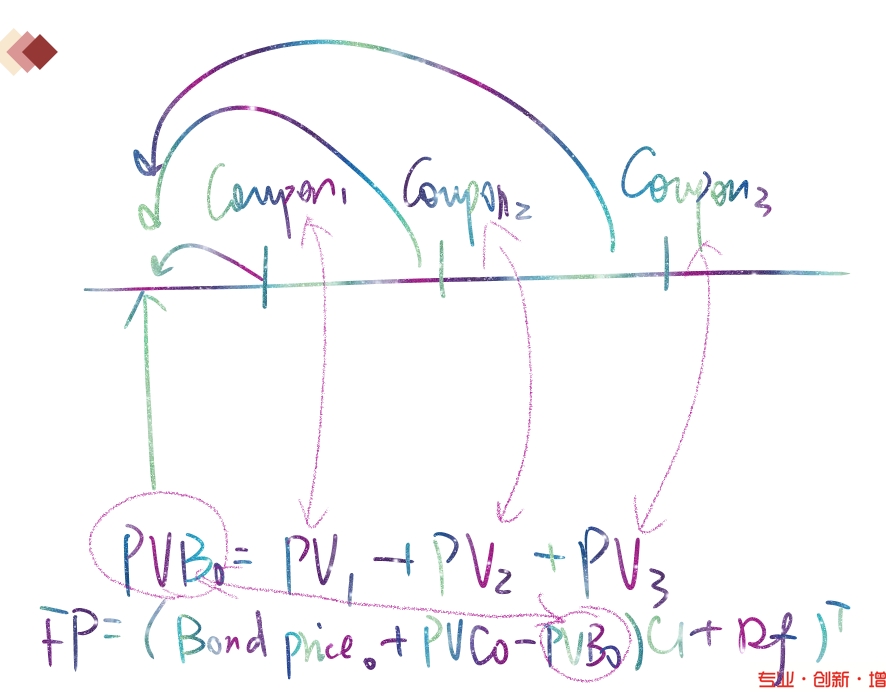 Coupon₁ Coupon₂ Coupon₃
PVB₀ = PV₁ + PV₂ + PV₃
FP = (Bond price₀ + PVC₀ - PVB₀)(1 + Rf)ᵀ
专业·创新·增